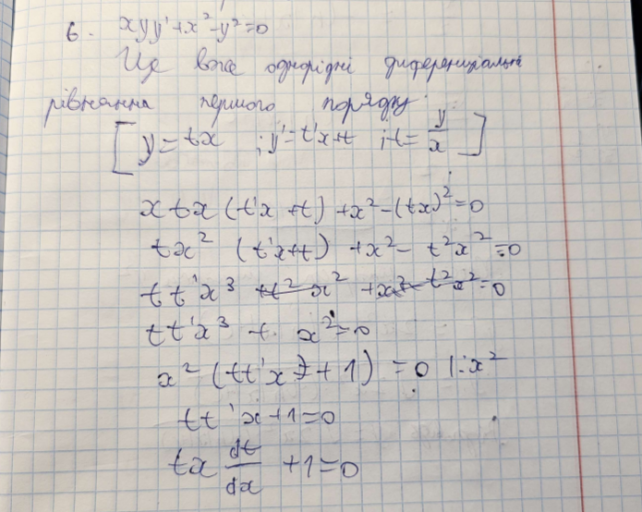 6. xyy' + x² - y² = 0
Це вже однорідні диференціальні
рівняння першого порядку.
[y = tx ; y' = t'x + t ; t = y/x]
x tx (t'x + t) + x² - (tx)² = 0
tx² (t'x + t) + x² - t²x² = 0
tt'x³ + t²x² + x² - t²x² = 0
tt'x³ + x² = 0
x² (tt'x + 1) = 0 |: x²
tt'x + 1 = 0
tx dt/dx + 1 = 0